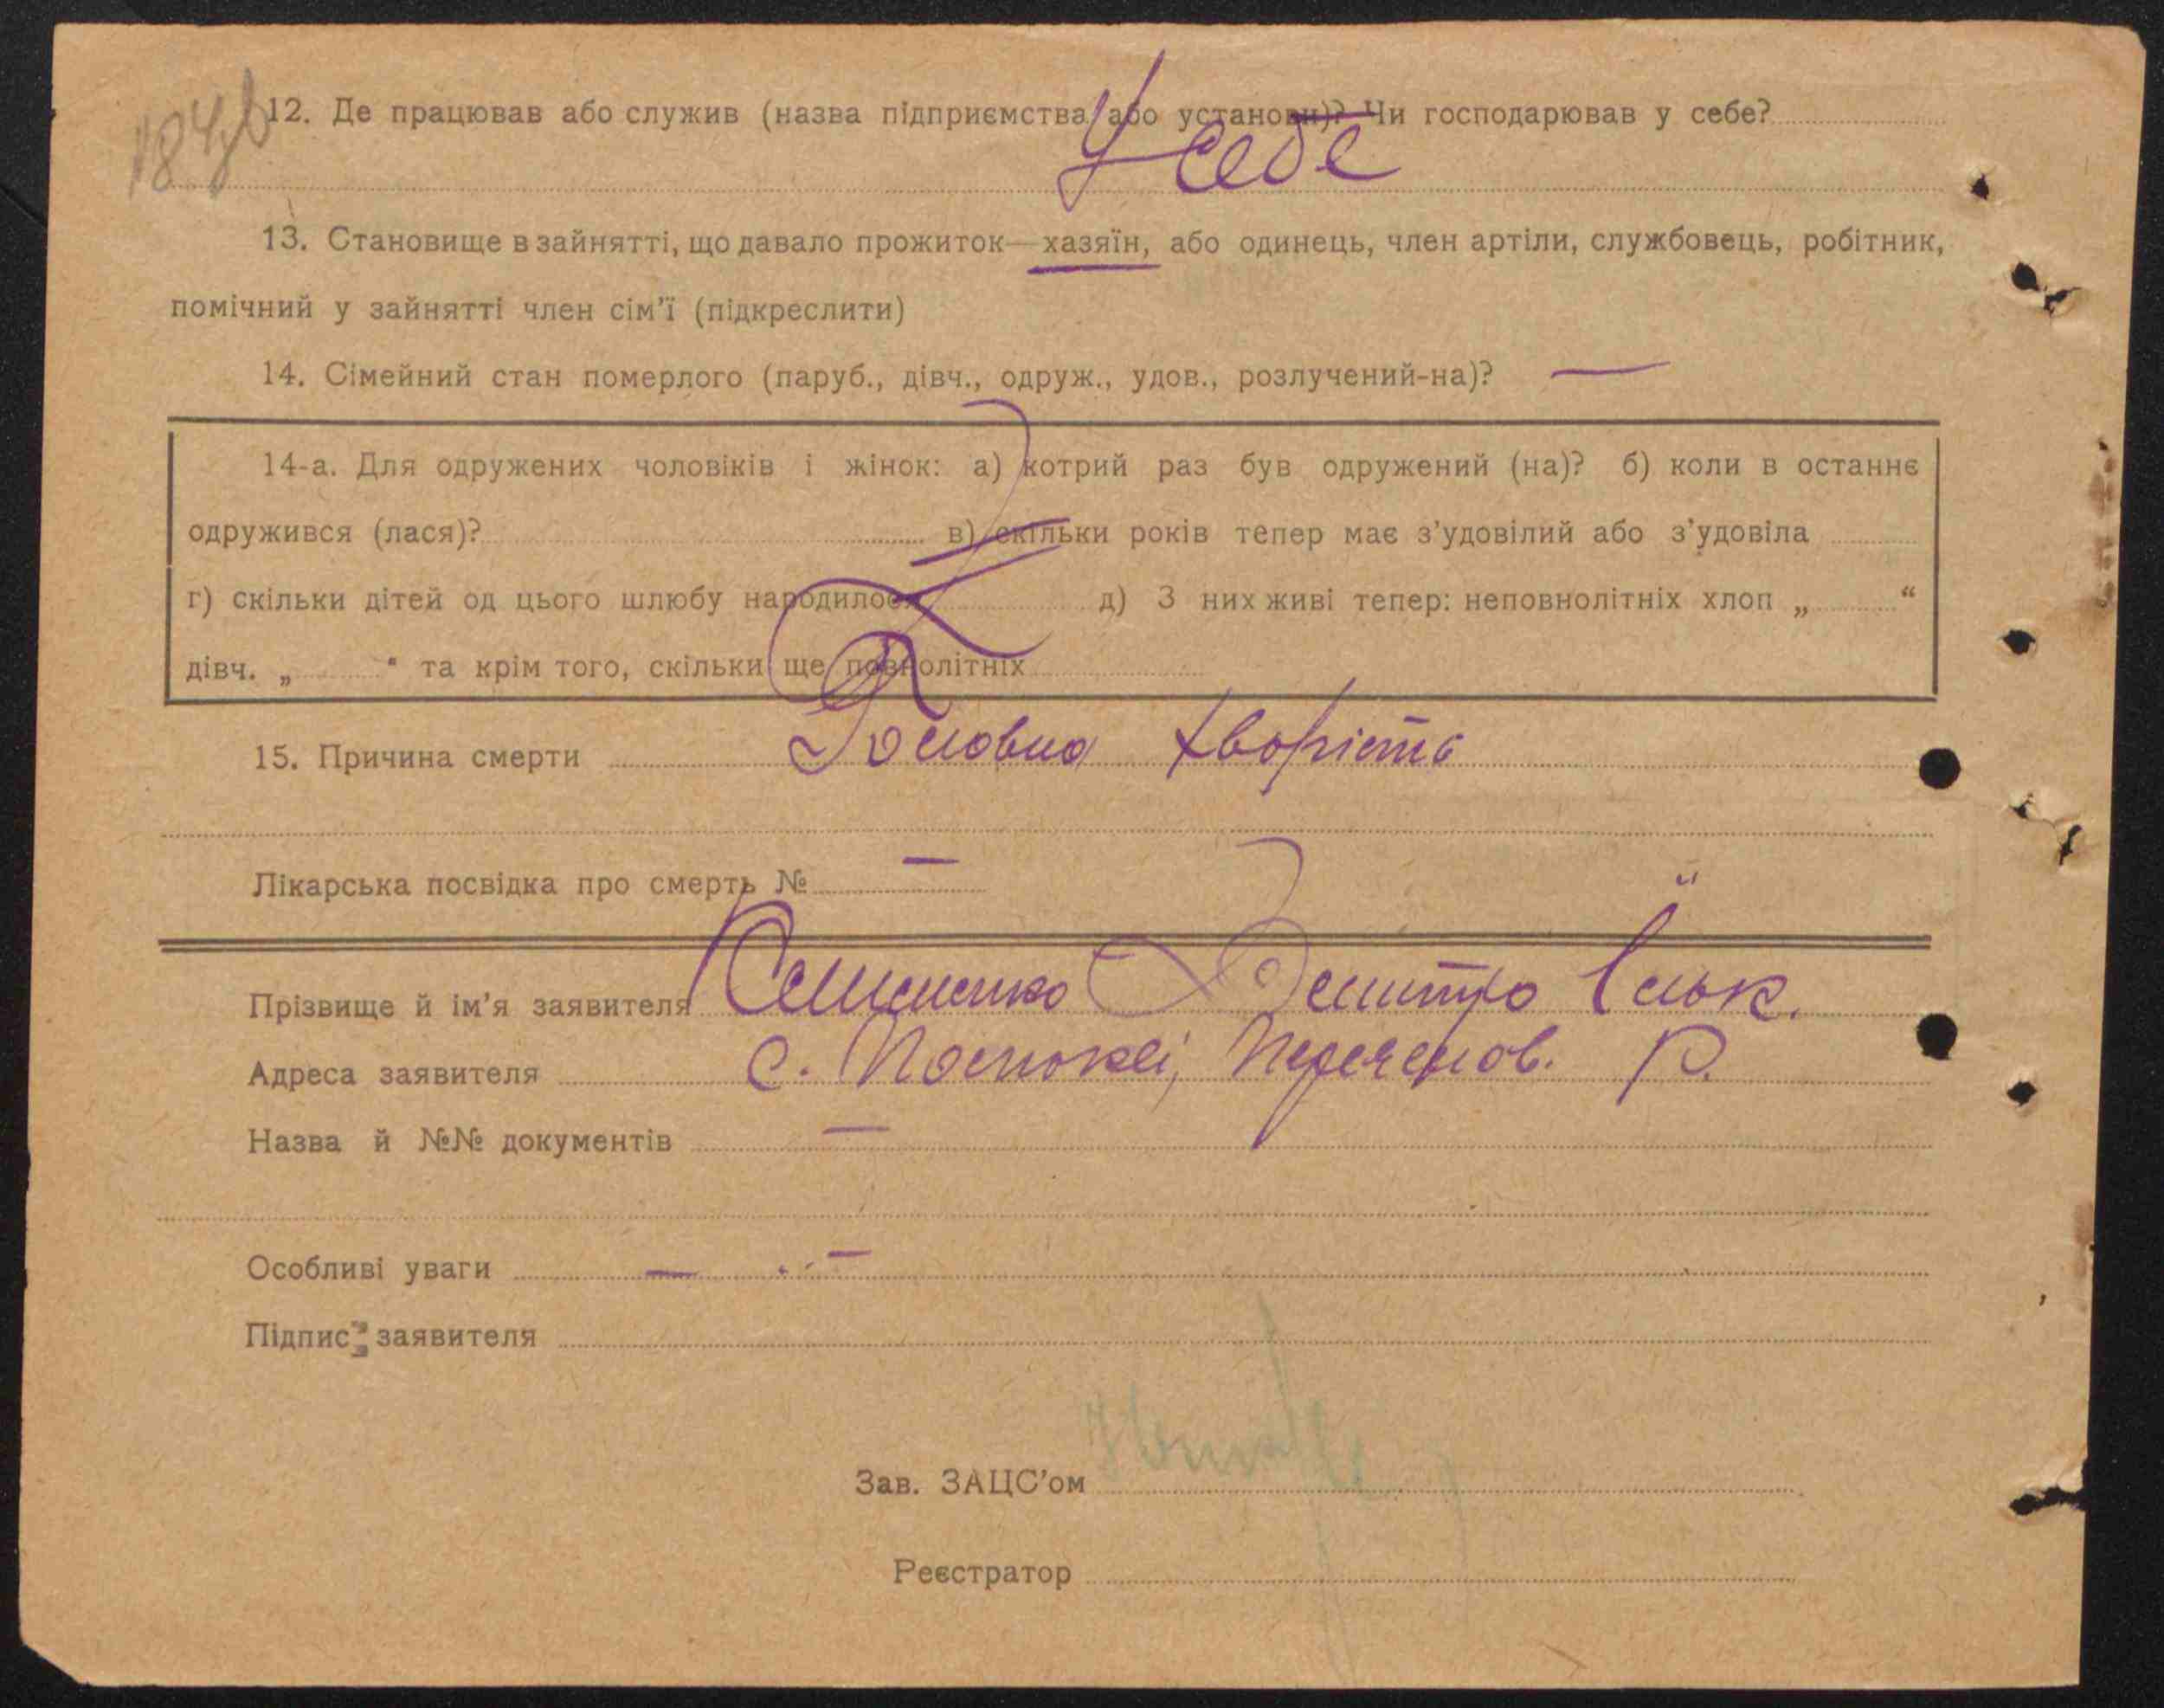 184зв
12. Де працював або служив (назва підприємства або установи)? Чи господарював у себе?
У себе
13. Становище в зайнятті, що давало прожиток—хазяїн, або одинець, член артіли, службовець, робітник,
помічний у зайнятті член сім'ї (підкреслити)
14. Сімейний стан померлого (паруб., дівч., одруж., удов., розлучений-на)? —
14-а. Для одружених чоловіків і жінок: а) котрий раз був одружений (на)? б) коли в останнє
одружився (лася)? в) скільки років тепер має з'удовілий або з'удовіла
г) скільки дітей од цього шлюбу народилося д) З них живі тепер: неповнолітніх хлоп „ “
дівч. „ “ та крім того, скільки ще повнолітніх
15. Причина смерти Головна хворість
Лікарська посвідка про смерть № —
Прізвище й ім'я заявителя Дмитро
Адреса заявителя с.
Назва й №№ документів —
Особливі уваги — —
Підпис заявителя
Зав. ЗАЦС'ом
Реєстратор